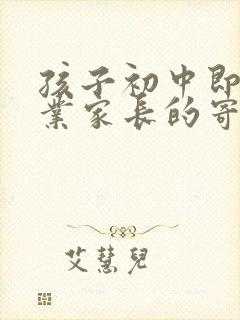 孩子初中即
業家长的寄
艾慧兒